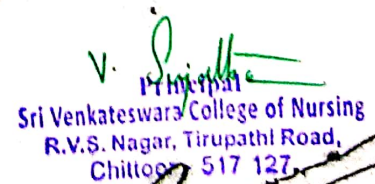 V. Sujatha
Principal
Sri Venkateswara College of Nursing
R.V.S. Nagar, Tirupathi Road,
Chittoor, 517 127.